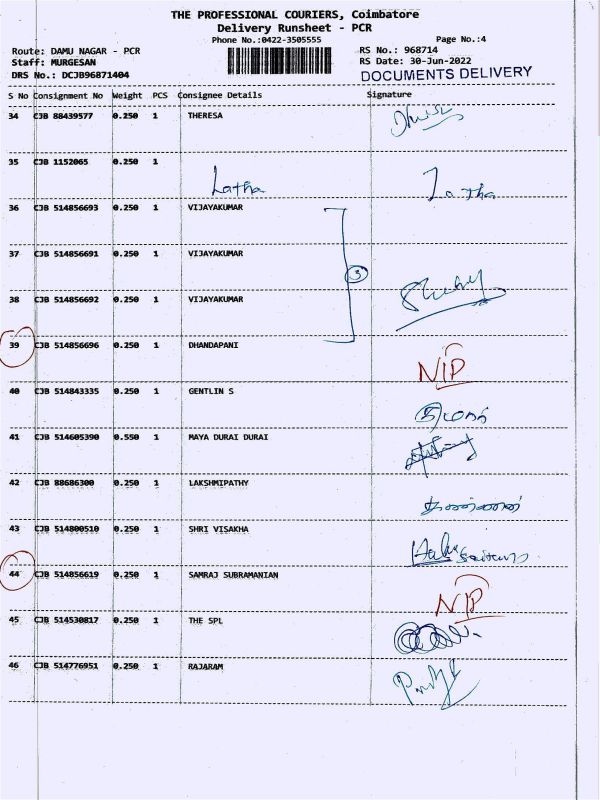 THE PROFESSIONAL COURIERS, Coimbatore
Delivery Runsheet - PCR
Phone No.:0422-3505555 Page No.:4
Route: DAMU NAGAR - PCR RS No.: 968714
Staff: MURGESAN RS Date: 30-Jun-2022
DRS No.: DCJB96871404 DOCUMENTS DELIVERY
S No Consignment No Weight PCS Consignee Details Signature
34 CJB 88439577 0.250 1 THERESA
35 CJB 1152065 0.250 1
Latha Latha
36 CJB 514856693 0.250 1 VIJAYAKUMAR
37 CJB 514856691 0.250 1 VIJAYAKUMAR
3
38 CJB 514856692 0.250 1 VIJAYAKUMAR
39 CJB 514856696 0.250 1 DHANDAPANI
NIP
40 CJB 514843335 0.250 1 GENTLIN S
41 CJB 514605390 0.550 1 MAYA DURAI DURAI
42 CJB 88686300 0.250 1 LAKSHMIPATHY
43 CJB 514800510 0.250 1 SHRI VISAKHA
44 CJB 514856619 0.250 1 SAMRAJ SUBRAMANIAN
NIP
45 CJB 514530817 0.250 1 THE SPL
46 CJB 514776951 0.250 1 RAJARAM